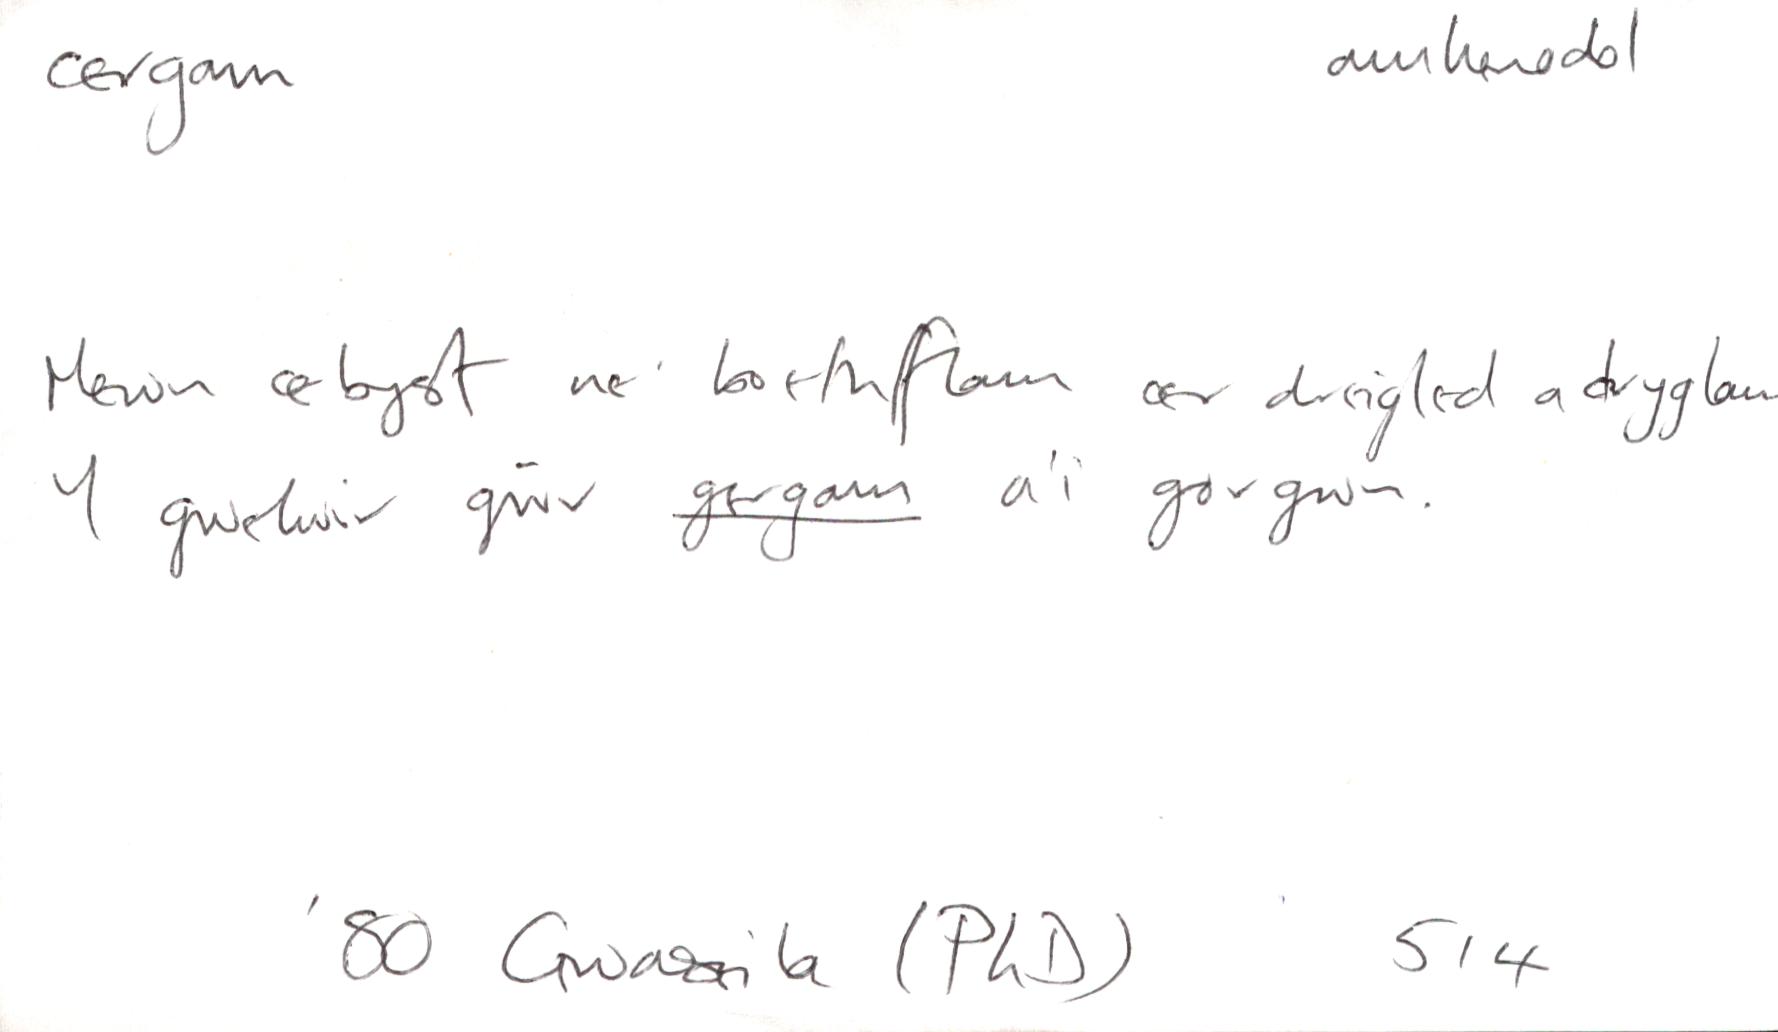 cergam amhenodol
Mewn cebyst ne' boethfflam cer dreigled a dryglam
Y gwelwir gŵr gergam a'i gorgwn.
'80 Gwassila (PhD) 514